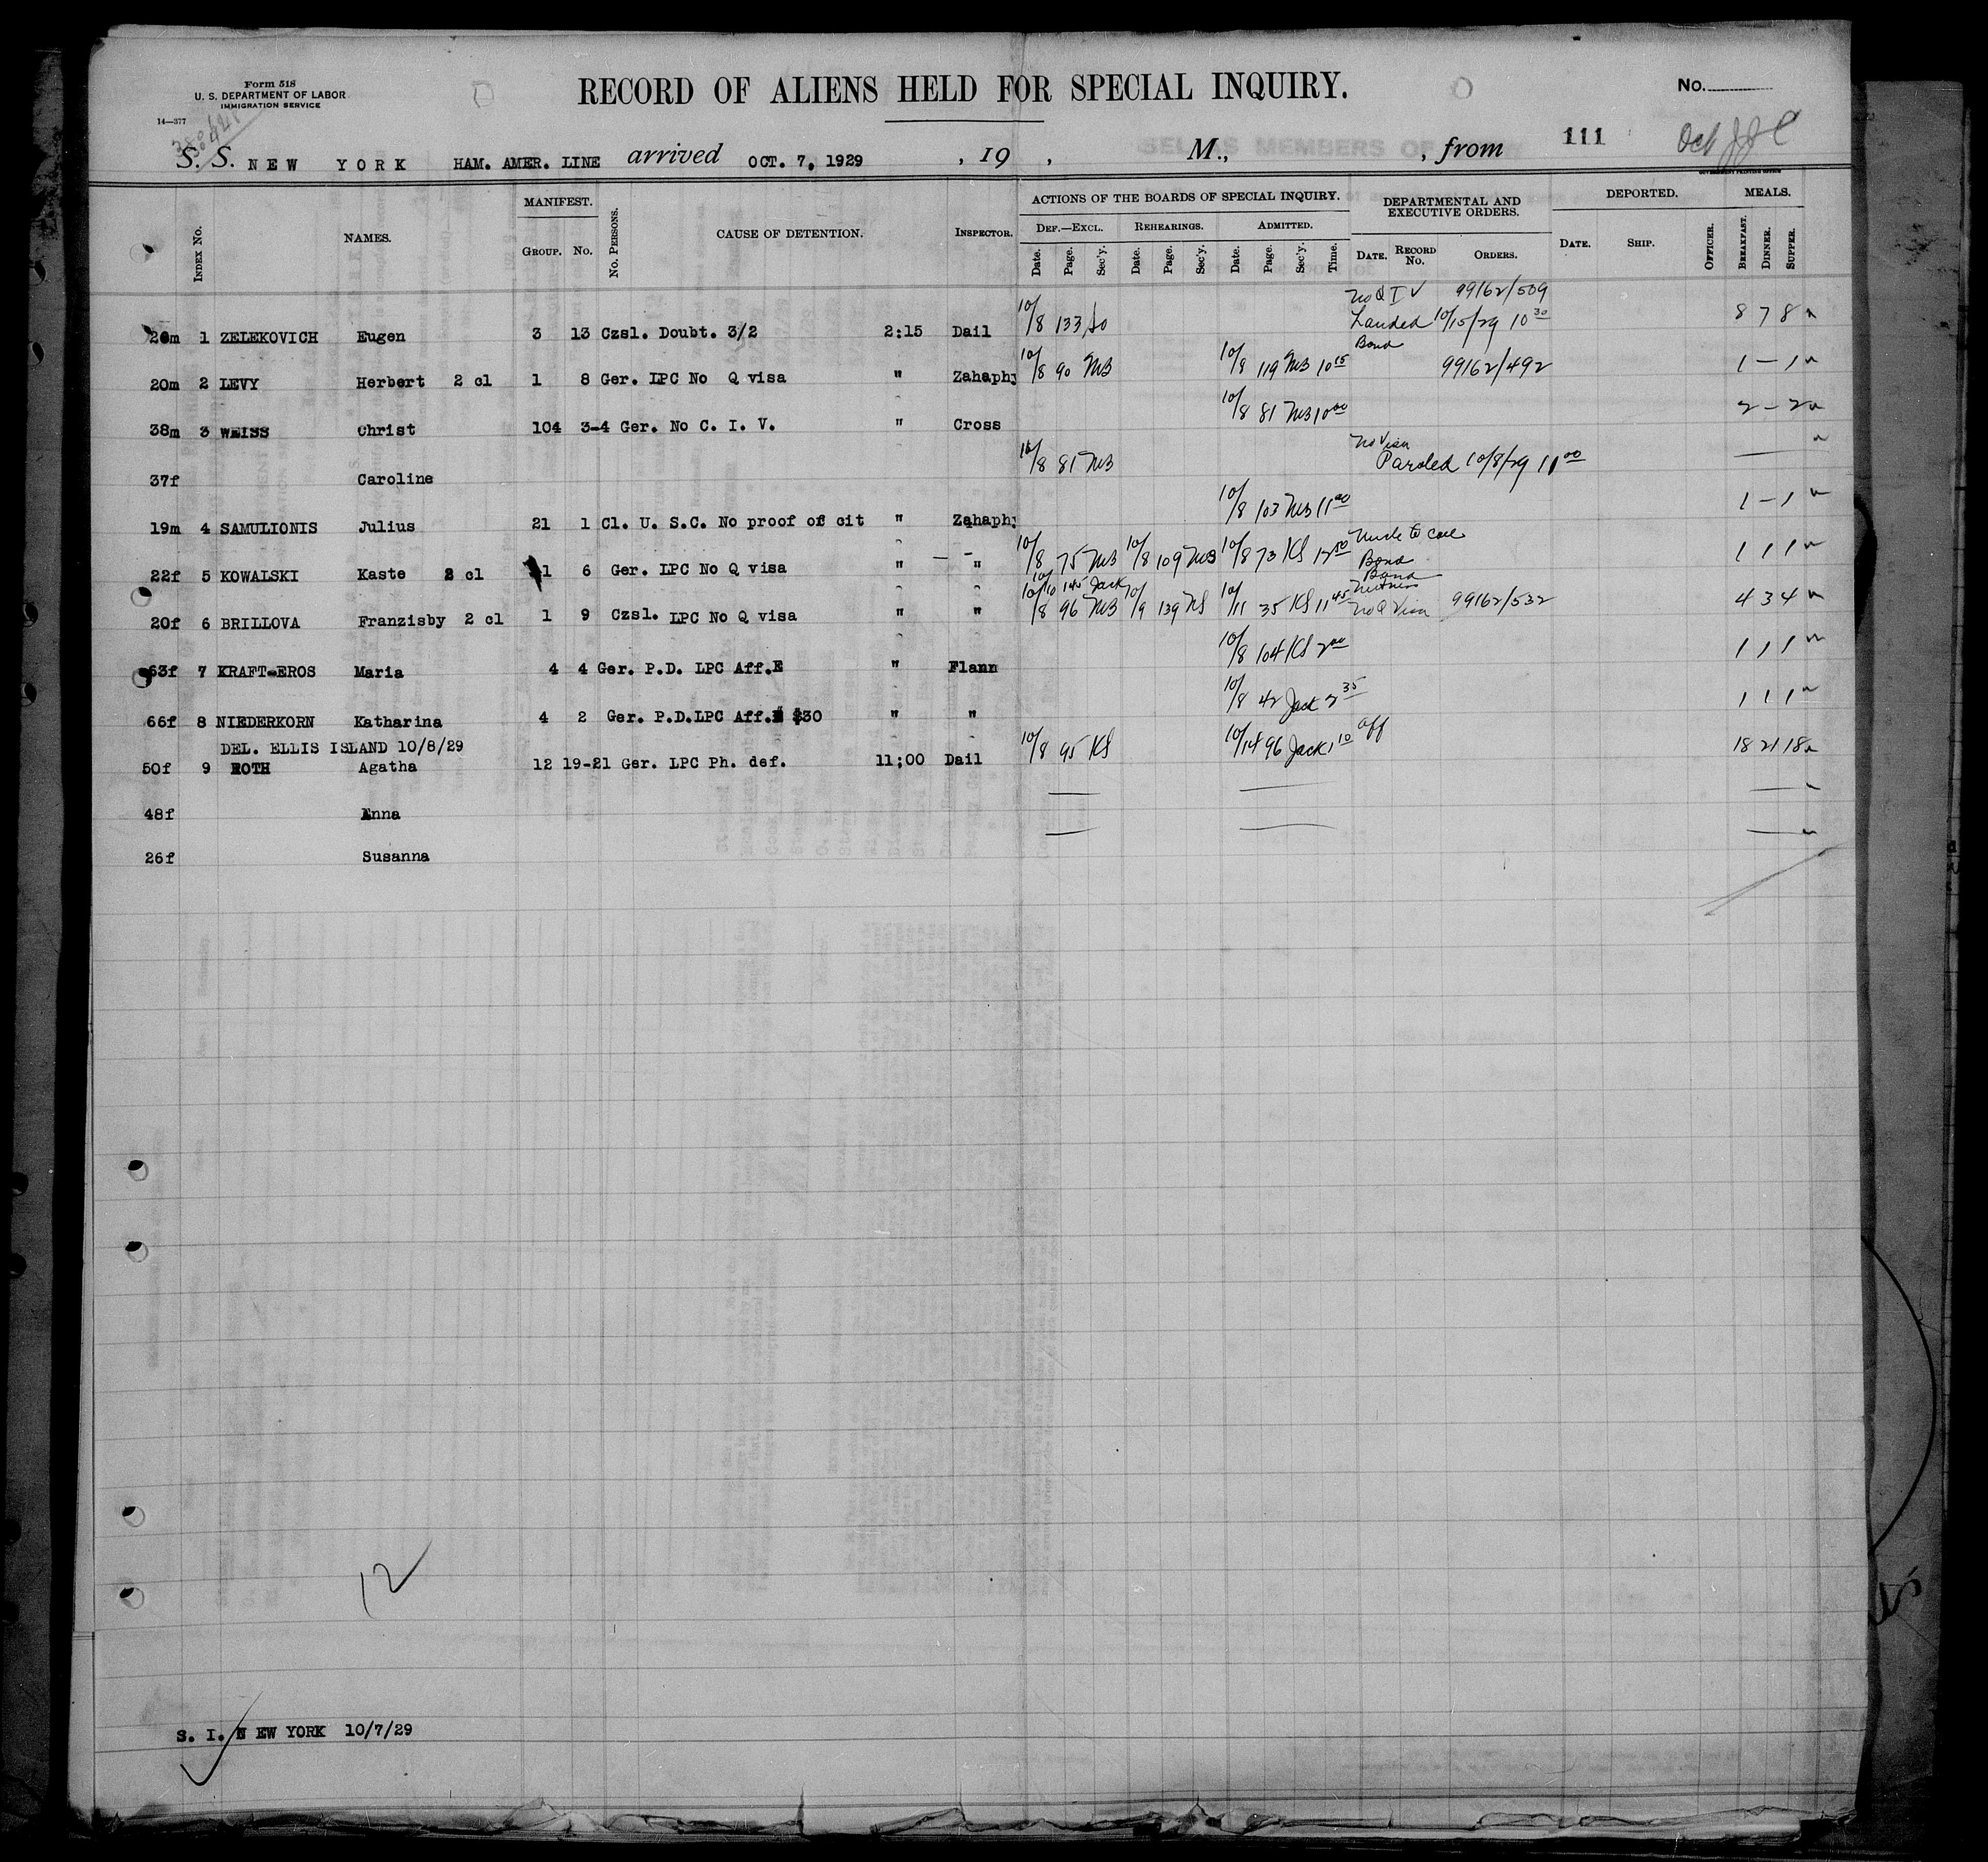 Form 518
U. S. DEPARTMENT OF LABOR
IMMIGRATION SERVICE
14—377
RECORD OF ALIENS HELD FOR SPECIAL INQUIRY.
No.
S. S. NEW YORK HAM. AMER. LINE arrived OCT. 7, 1929 , 19 , M., , from 111 Oct
INDEX No. NAMES. MANIFEST. GROUP. No. No. PERSONS. CAUSE OF DETENTION. INSPECTOR.
ACTIONS OF THE BOARDS OF SPECIAL INQUIRY. DEPARTMENTAL AND EXECUTIVE ORDERS. DEPORTED. MEALS.
DEF.—EXCL. REHEARINGS. ADMITTED.
Date. Page. Sec'y. Date. Page. Sec'y. Date. Page. Sec'y. Time. DATE. RECORD No. ORDERS. DATE. SHIP. OFFICER. BREAKFAST. DINNER. SUPPER.
No Q I V 99162/509
20m 1 ZELEKOVICH Eugen 3 13 Czsl. Doubt. 3/2 2:15 Dail 10/8 133 Landed 10/15/29 10 30 8 7 8
Bond
20m 2 LEVY Herbert 2 cl 1 8 Ger. LPC No Q visa " Zahaphy 10/8 90 MB 10/8 119 MB 10 15 99162/492 1 – 1
38m 3 WEISS Christ 104 3-4 Ger. No C. I. V. " Cross 10/8 81 MB 10 00 2 – 2
No Visa
37f Caroline 10/8 81 MB Paroled 10/8/29 11 00 —
19m 4 SAMULIONIS Julius 21 1 Cl. U. S.C. No proof of cit " Zahaphy 10/8 103 MB 11 00 1 – 1
Uncle to call
22f 5 KOWALSKI Kaste 2 cl 1 6 Ger. LPC No Q visa " " 10/8 75 MB 10/8 109 MB 10/8 73 KS 12 50 Bond 1 1 1
10/10 145 Jack Bond
Witness
20f 6 BRILLOVA Franzisby 2 cl 1 9 Czsl. LPC No Q visa " " 10/8 96 MB 10/9 139 10/11 35 KS 11 45 No Q Visa 99162/532 4 3 4
63f 7 KRAFT-EROS Maria 4 4 Ger. P.D. LPC Aff.E " Flann 10/8 104 KS 2 00 1 1 1
66f 8 NIEDERKORN Katharina 4 2 Ger. P.D.LPC Aff. $30 " " 10/8 42 Jack 2 35 1 1 1
DEL. ELLIS ISLAND 10/8/29
50f 9 ROTH Agatha 12 19-21 Ger. LPC Ph. def. 11;00 Dail 10/8 95 KS 10/14 96 Jack 1 10 Aff 18 21 18
48f Anna — — —
26f Susanna — — —
12
S. I. N EW YORK 10/7/29